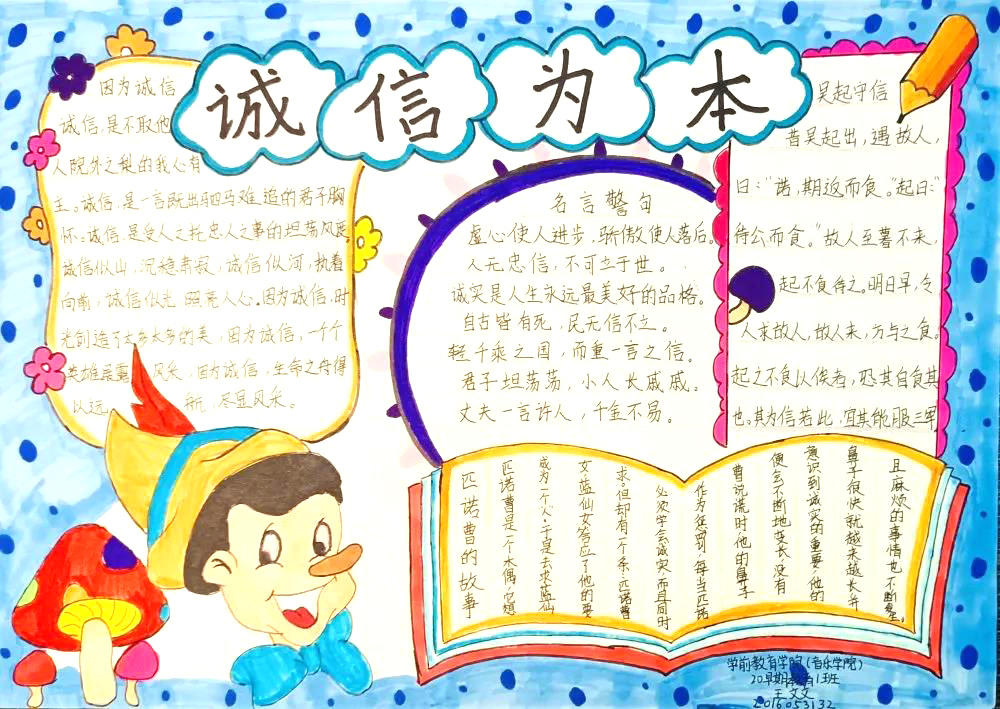 诚信为本
因为诚信
诚信,是不取他
人院外之梨的我心有
主。诚信,是一言既出驷马难追的君子胸
怀。诚信,是受人之托忠人之事的坦荡风度。
诚信似山,沉稳肃寂,诚信似河,执着
向前,诚信似光 照亮人心。因为诚信,时
光创造了太多太多的美,因为诚信,一个个
英雄 风采,因为诚信,生命之舟得
以远 航,尽显风采。
名言警句
虚心使人进步,骄傲使人落后。
人无忠信,不可立于世。
诚实是人生永远最美好的品格。
自古皆有死,民无信不立。
轻千乘之国,而重一言之信。
君子坦荡荡,小人长戚戚。
丈夫一言许人,千金不易。
吴起守信
昔吴起出,遇故人,
曰:“诺,期返而食。”起曰:“
待公而食。”故人至暮不来,
起不食待之。明日早,令
人求故人,故人来,方与之食。
起之不食以俟者,恐其自食其
也。其为信若此,宜其能服三军
匹诺曹的故事
匹诺曹是一个木偶,它想
成为一个人,于是去求蓝仙
女蓝仙女答应了他的要
求。但却有一个条,匹诺曹
必须学会诚实,而且同时
作为惩罚,每当匹诺
曹说谎时他的鼻子
便会不断地变长,没有
意识到诚实的重要,他的
鼻子很快就越来越长,并
且麻烦的事情也不断
学前教育学院(音乐学院)
20早期教育1班
王文文
2016053132